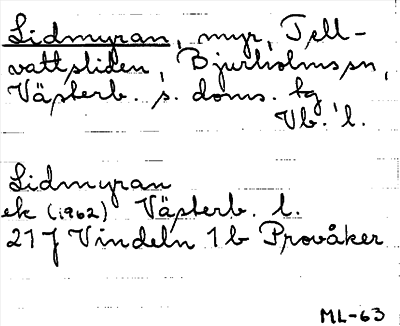 Lidmyran, myr, Tell-
vattsliden, Bjurholms sn,
Västerb. s. doms. tg
Vb. l.
Lidmyran
ek (1962) Västerb. l.
21 J Vindeln 1 b Provåker
ML-63